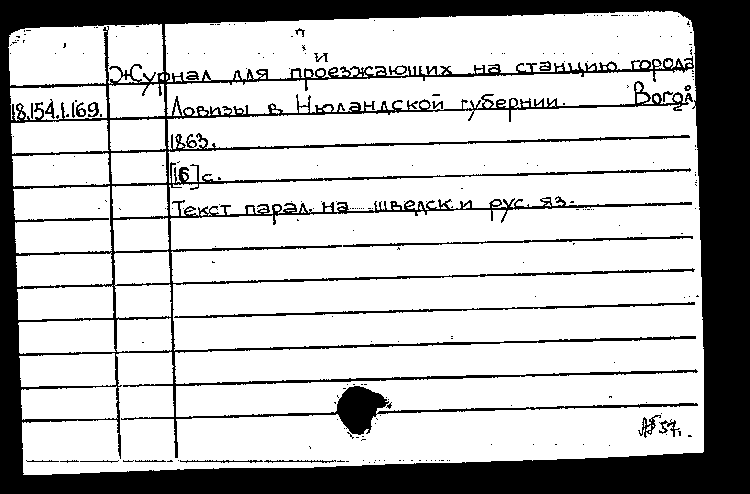 и
Журнал для проезжающих на станцию города
18.154.1.169. Ловизы в Нюландской губернии. Borgå,
1863.
[16] с.
Текст парал. на шведск и рус. яз.